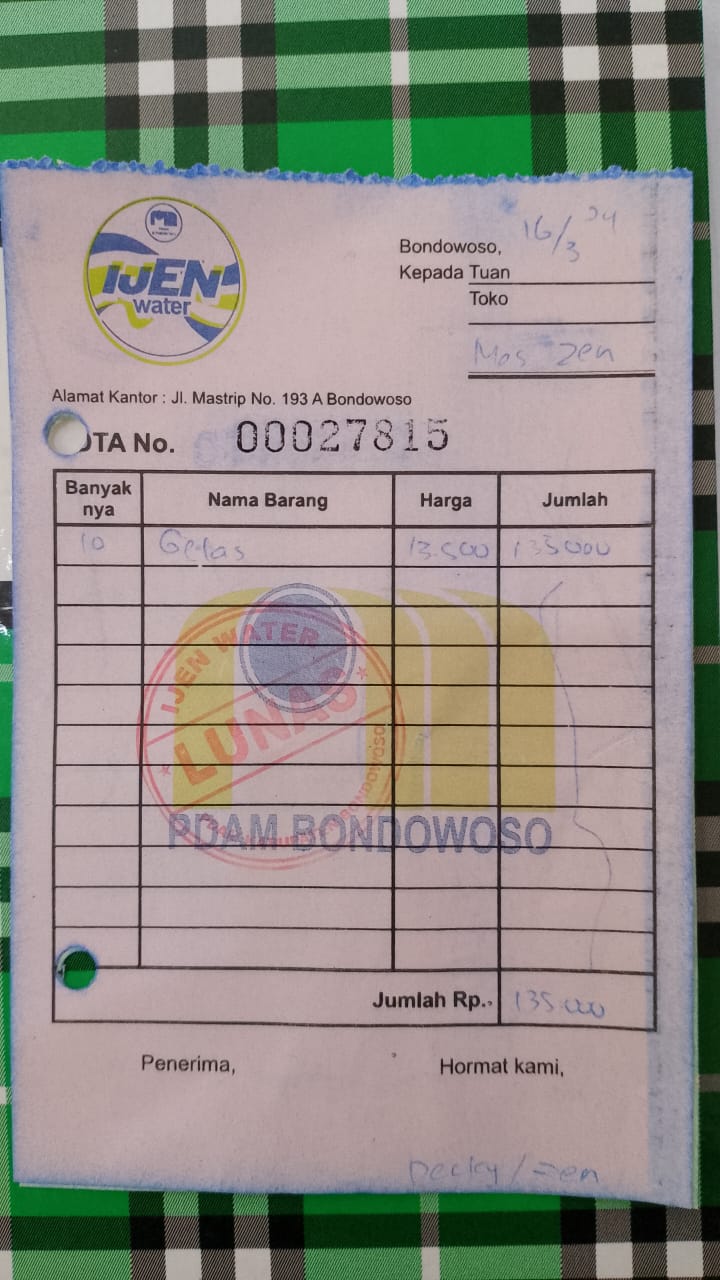 IJEN
water
Bondowoso, 16/3 24
Kepada Tuan
Toko
Mas Zen
Alamat Kantor : Jl. Mastrip No. 193 A Bondowoso
OTA No. 00027815
Banyak nya Nama Barang Harga Jumlah
10 Gelas 13.500 135000
IJEN WATER
LUNAS
PDAM BONDOWOSO
Jumlah Rp. 135.000
Penerima, Hormat kami,
Decky / Zen